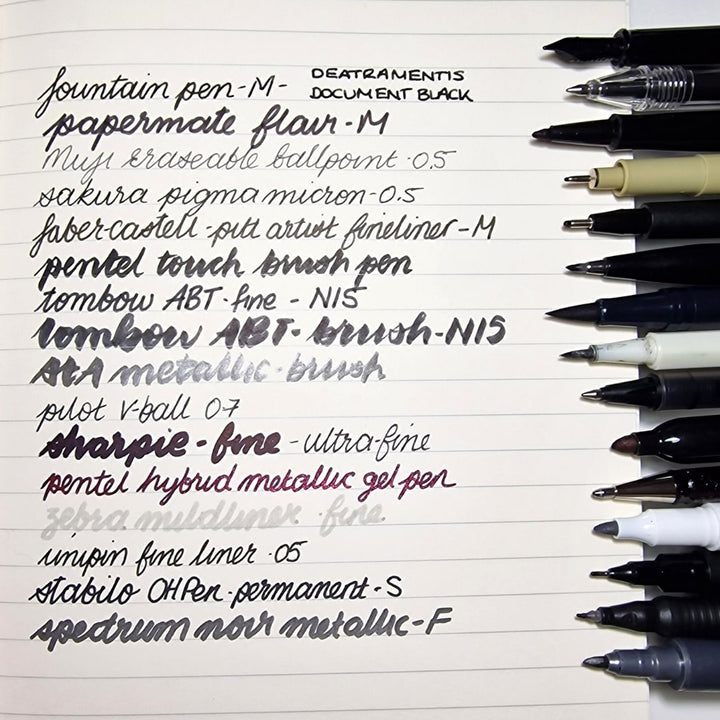 fountain pen-M- DEATRAMENTIS
DOCUMENT BLACK
papermate flair-M
Muji eraseable ballpoint ·0.5
sakura pigma micron-0.5
faber-castell-pitt artist fineliner-M
pentel touch brush pen
tombow ABT-fine - N15
tombow ABT-brush-N15
StA metallic-brush
pilot V-ball 0.7
sharpie-fine - ultra-fine
pentel hybrid metallic gel pen
zebra mildliner ·fine
unipin fine liner ·05
stabilo OHPen-permanent-S
spectrum noir metallic-F